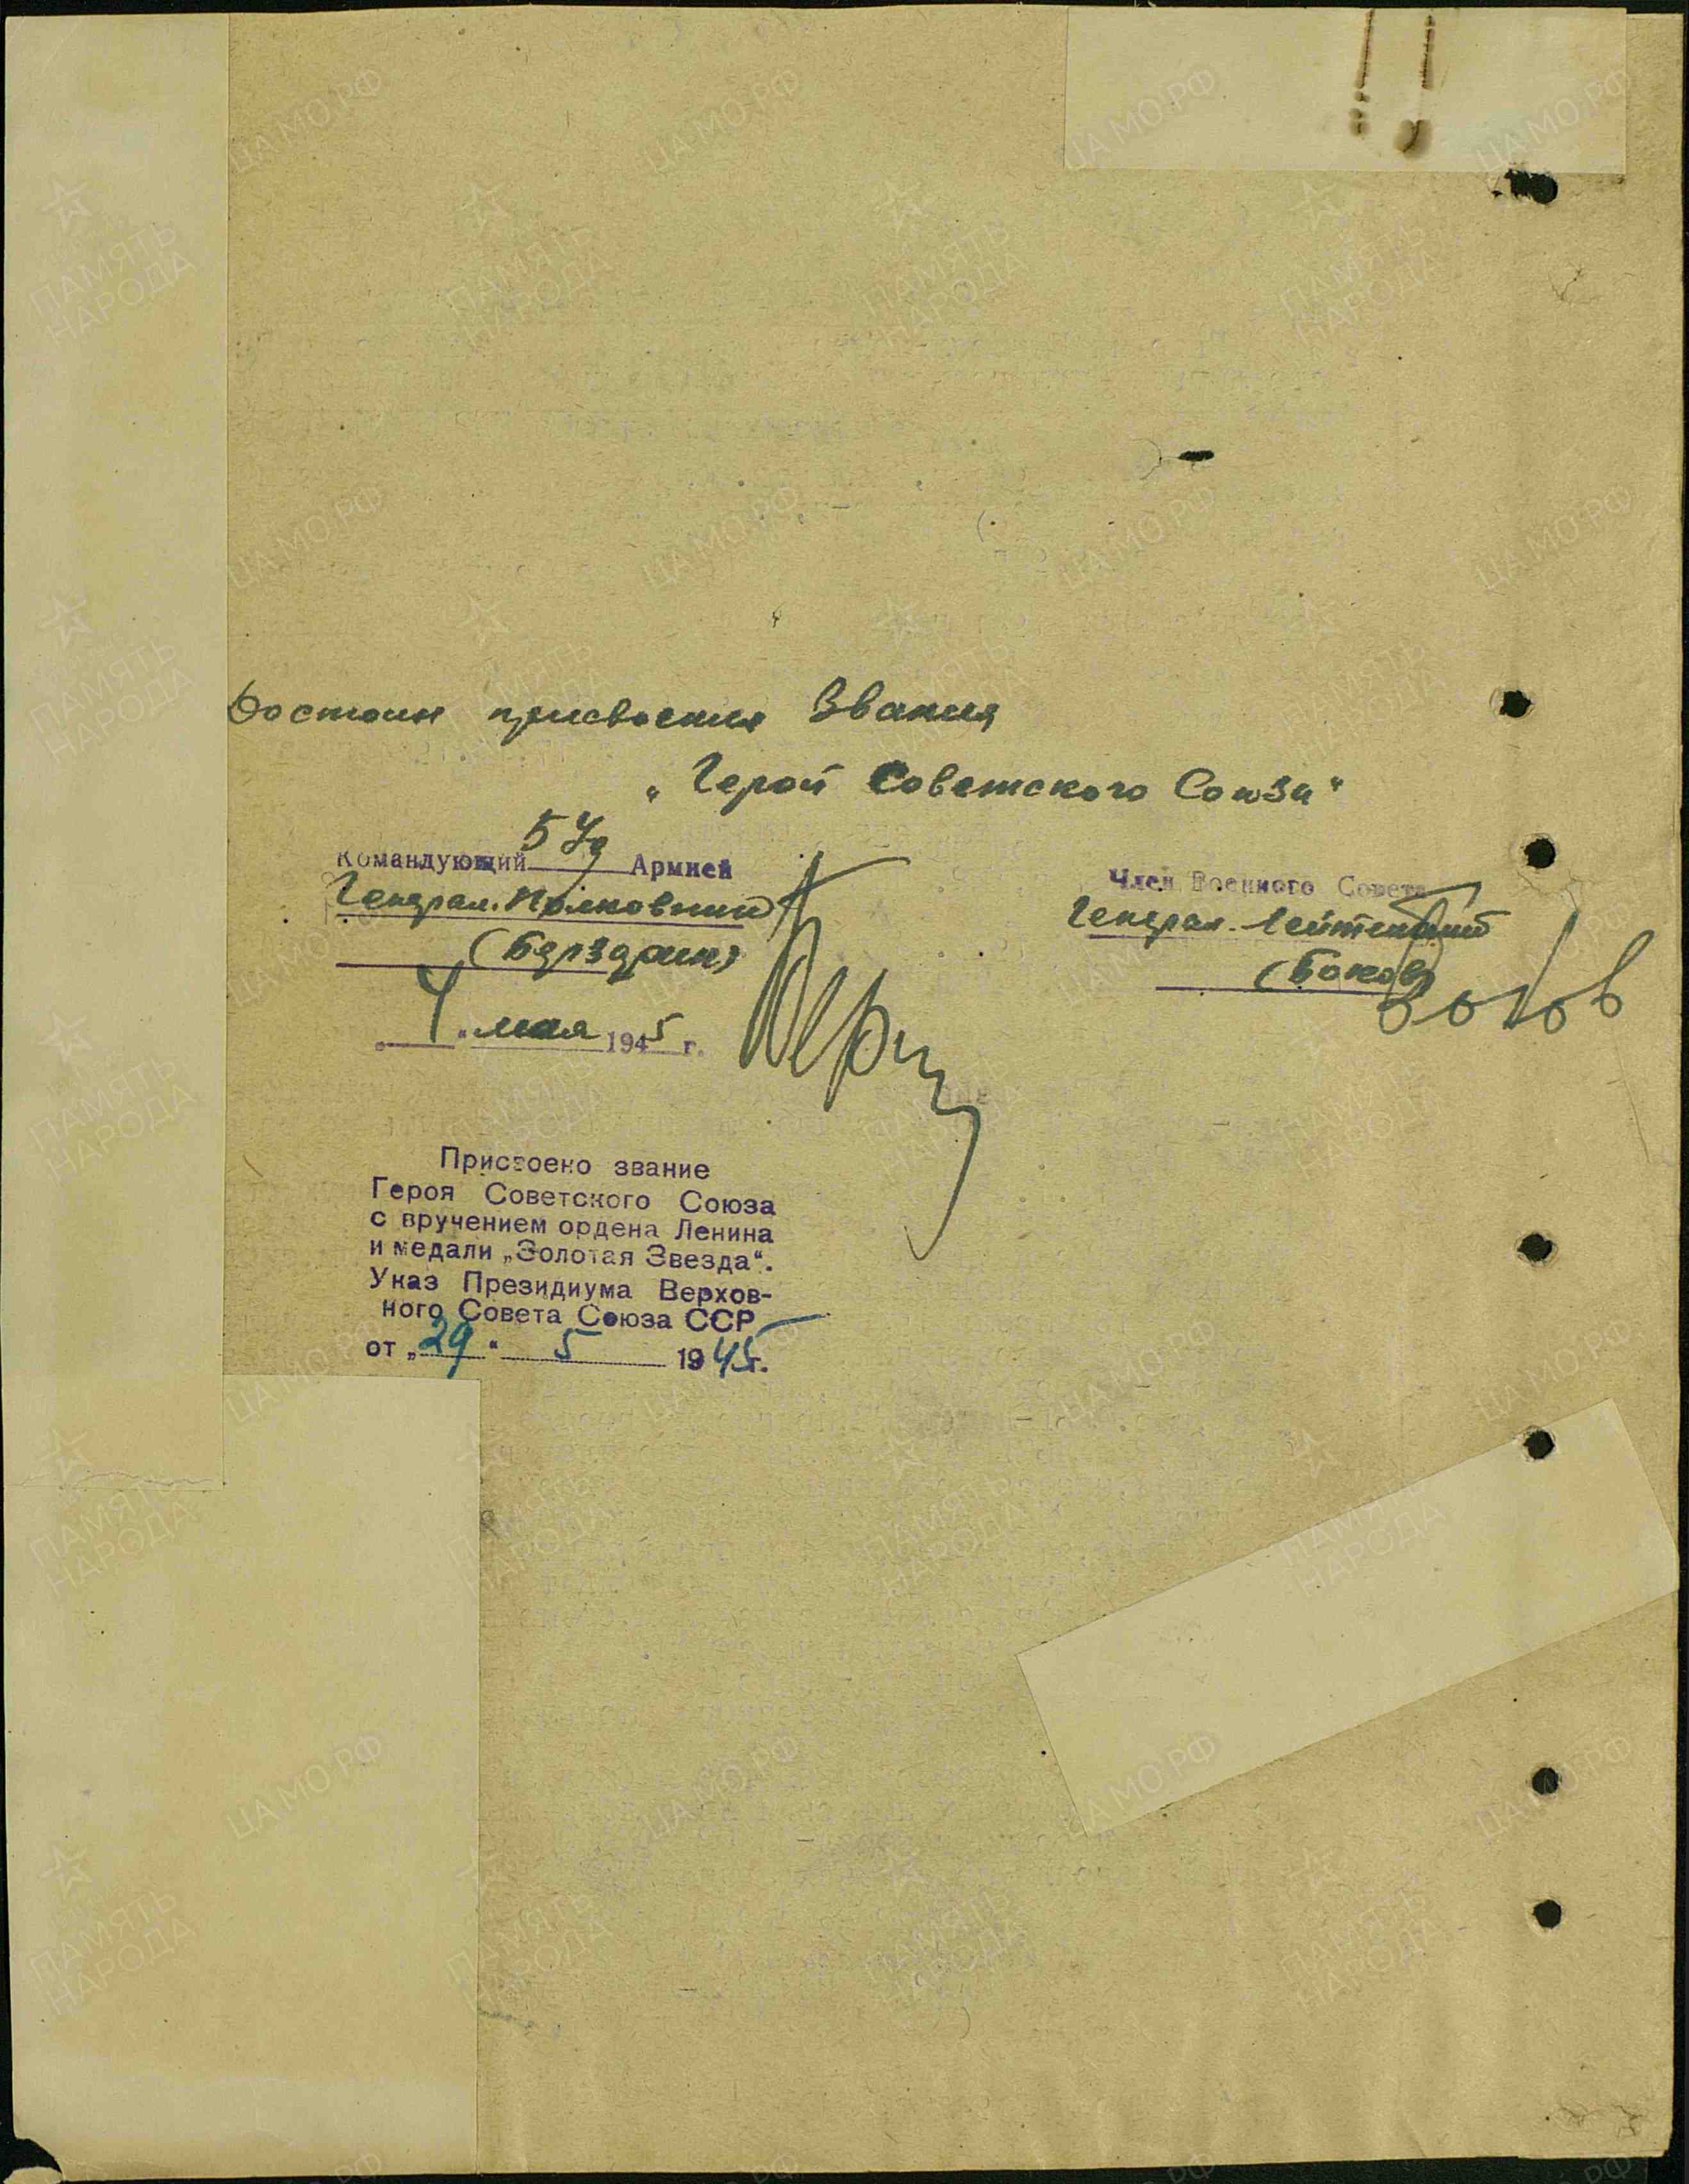 Достоин присвоения Звания
„Герой Советского Союза“
Командующий 5 Уд Армией
Генерал-Полковник
(Берзарин)
„4“ мая 1945 г.
Член Военного Совета
Генерал-Лейтенант
(Боков)
Боков
Присвоено звание
Героя Советского Союза
с вручением ордена Ленина
и медали „Золотая Звезда“.
Указ Президиума Верхов-
ного Совета Союза ССР
от „29“ 5 1945г.
ПАМЯТЬ
НАРОДА
ЦАМО РФ